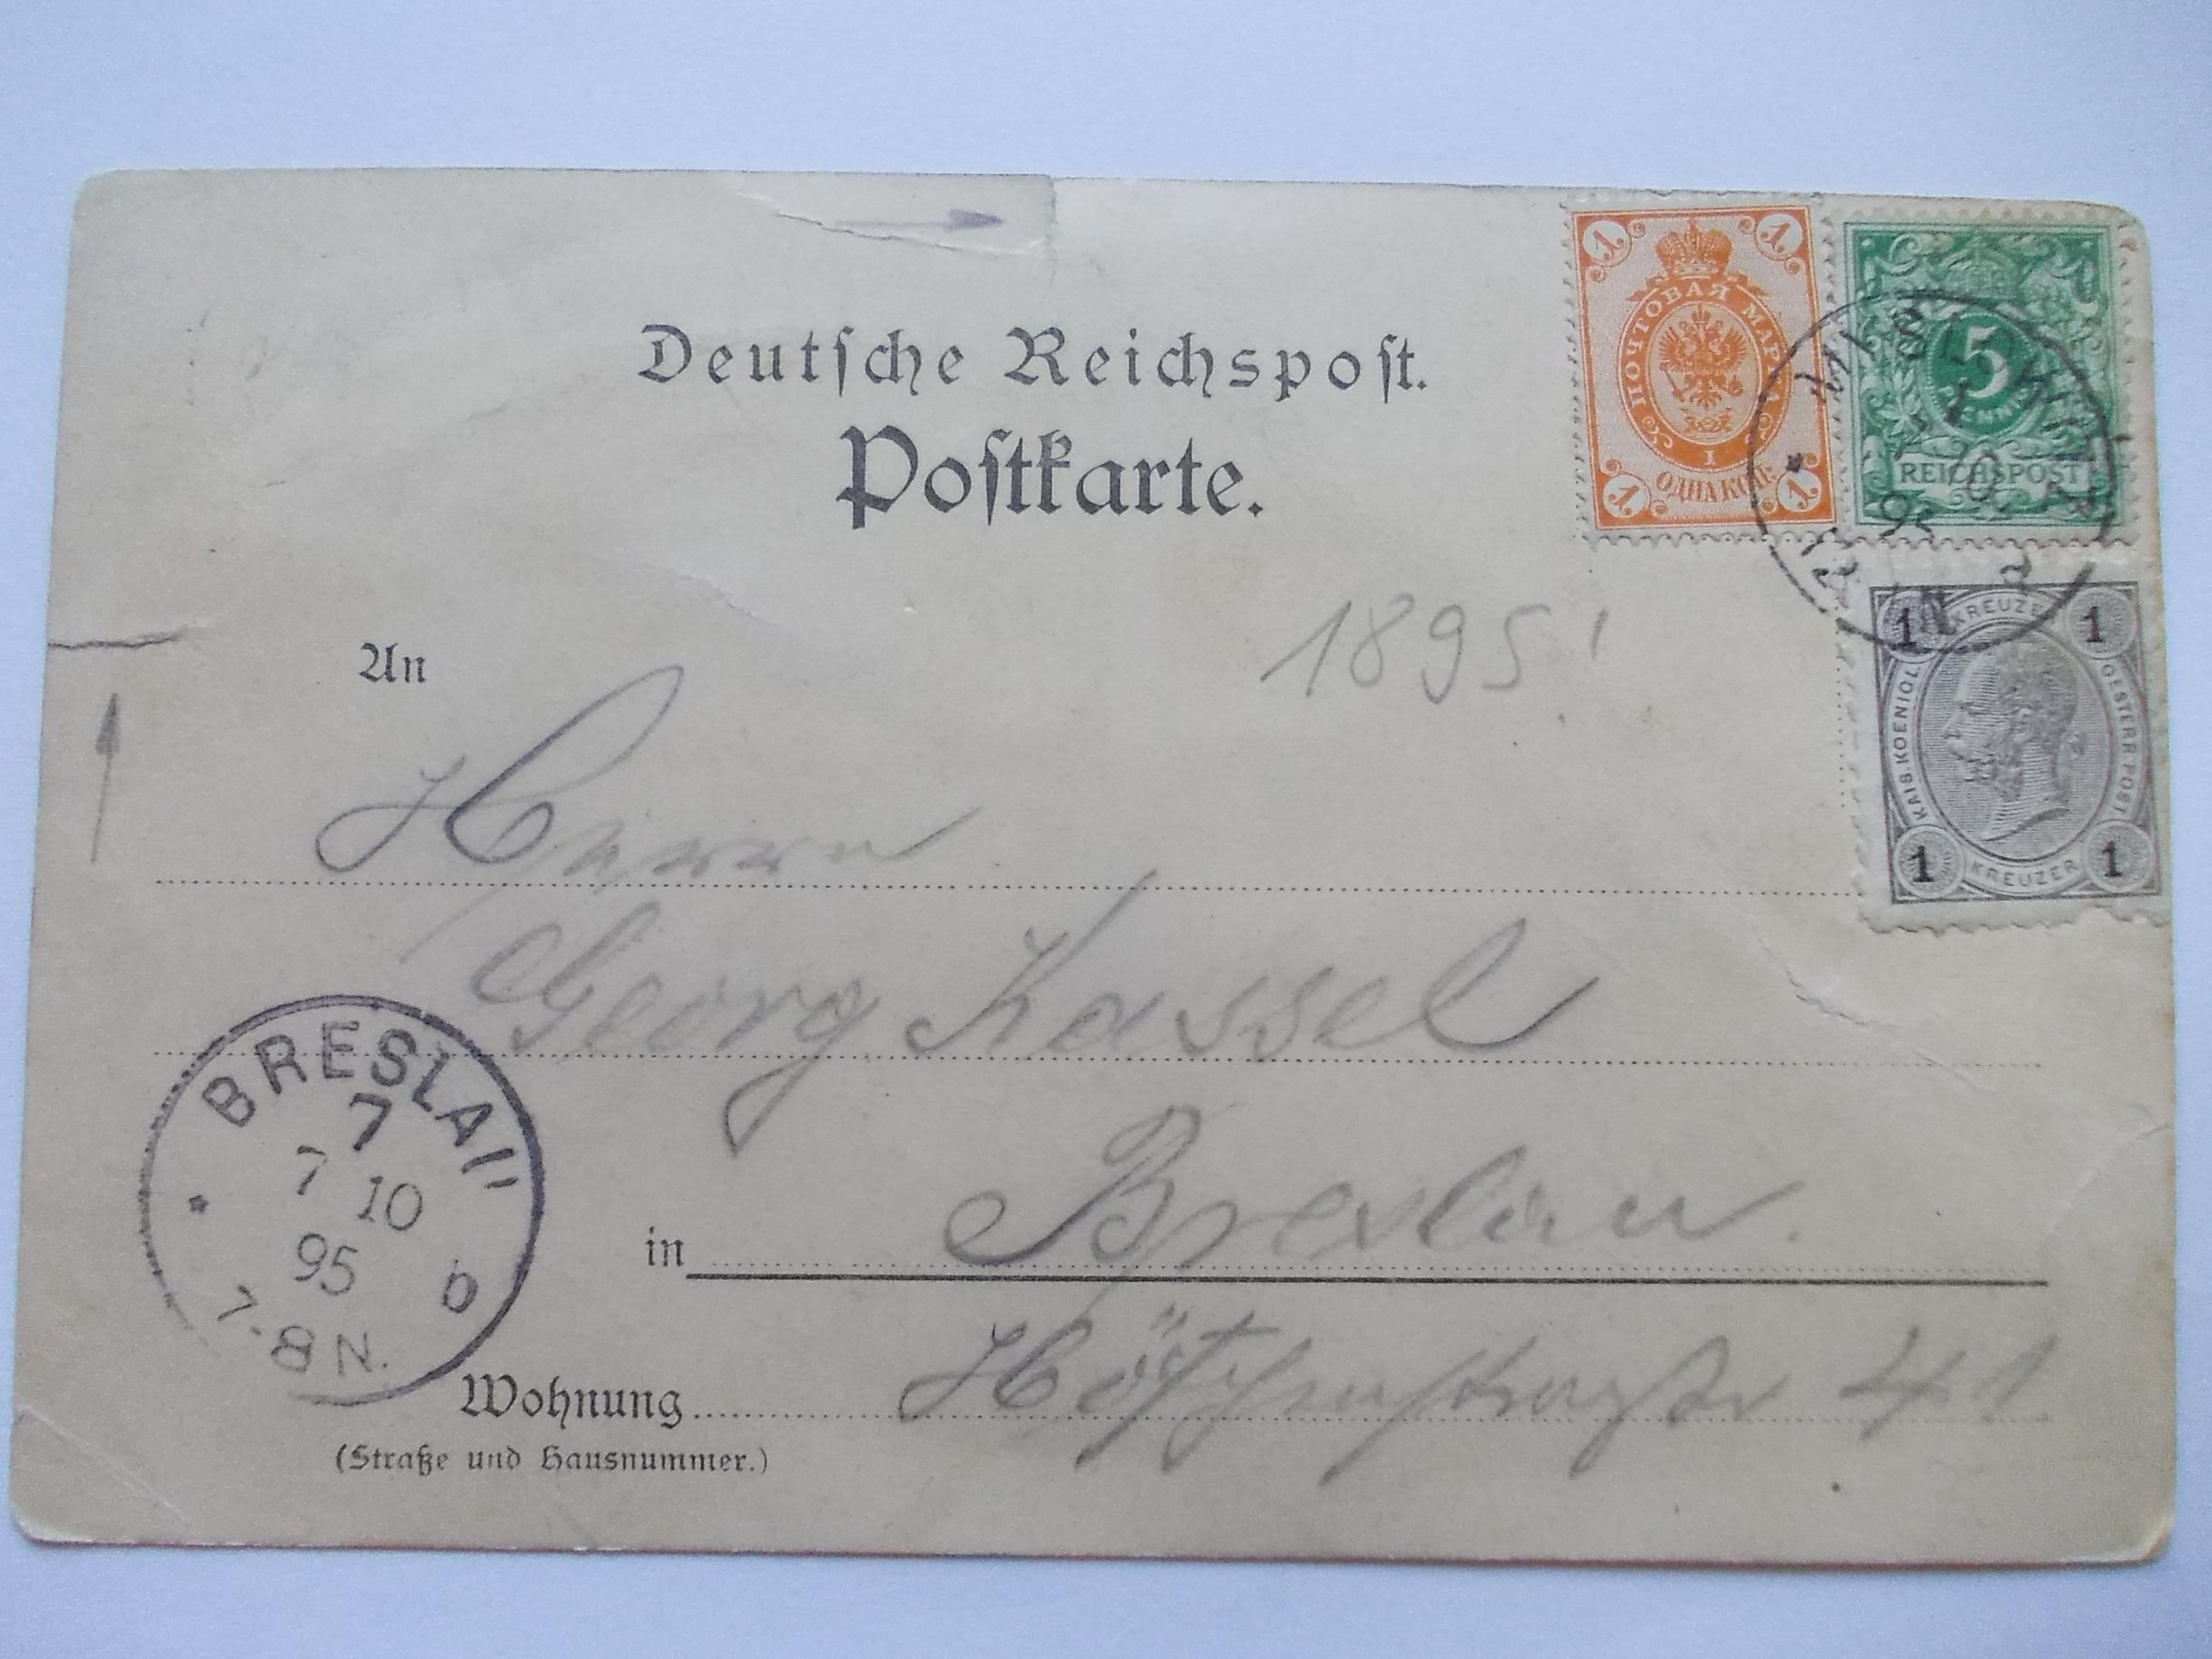 Deutsche Reichspost.
Postkarte.
1 1
ПОЧТОВАЯ МАРКА
1
ОДНА КОП.
1 1
5
PFENNIG
REICHSPOST
1 KREUZER 1
KAIS. KOENIGL. OESTERR. POST
1 KREUZER 1
1895!
An
Herrn
Georg Kassel
BRESLAU
7
7 10
95
b
7-8 N.
in Breslau.
Wohnung Höfchenstraße 41.
(Straße und Hausnummer.)